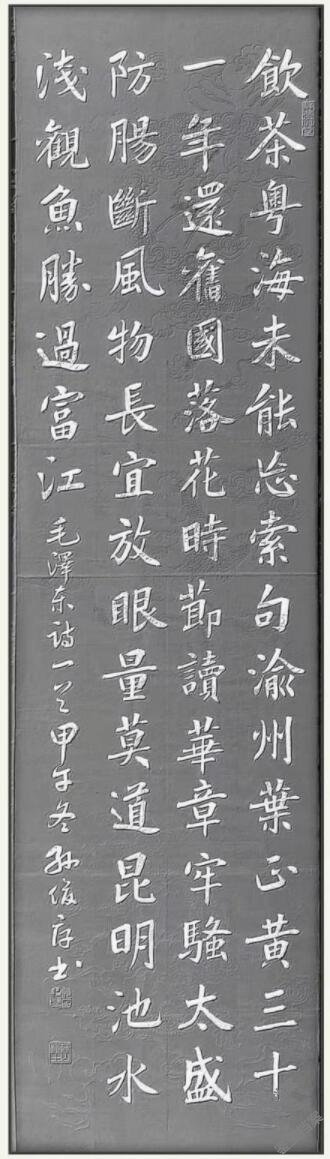 飲茶粵海未能忘索句渝州葉正黃三十
一年還舊國落花時節讀華章牢騷太盛
防腸斷風物長宜放眼量莫道昆明池水
淺觀魚勝過富江 毛澤东诗一首甲午冬孙俊存书